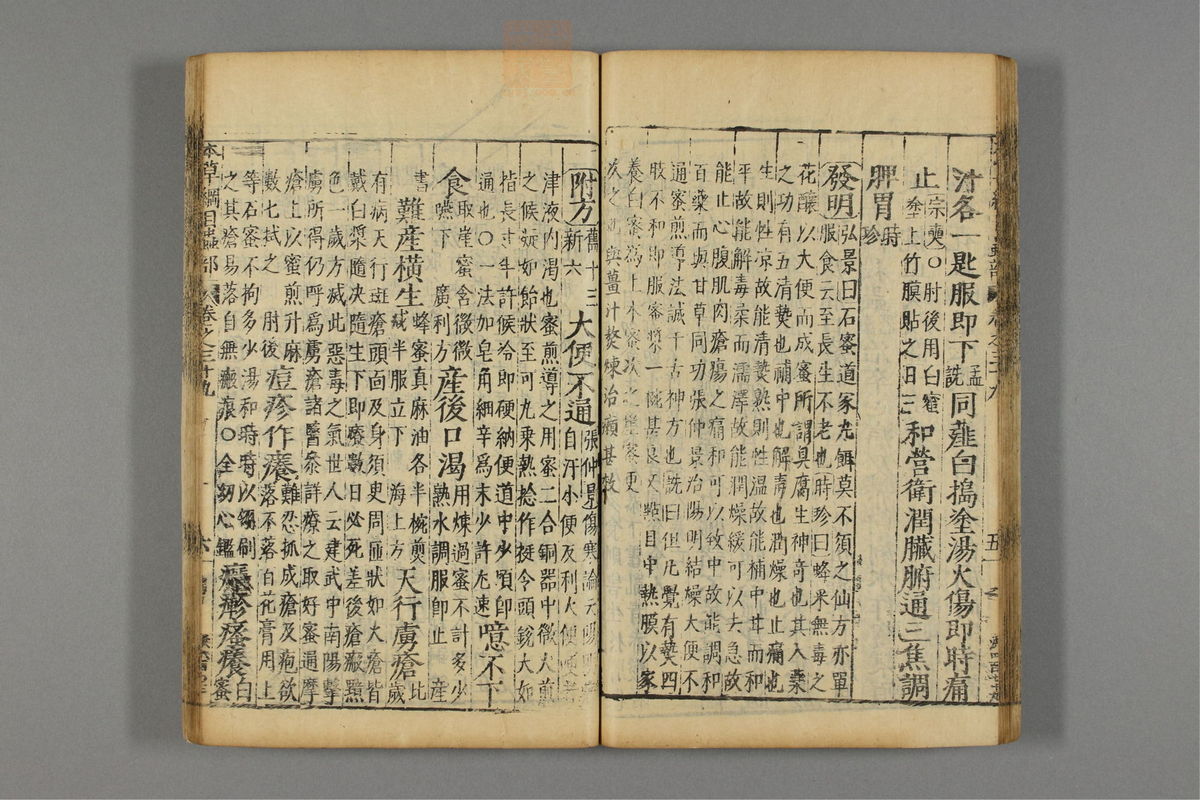 治各一匙服即下孟詵同薤白搗塗湯火傷即時痛
止宗奭○肘後用白蜜塗上竹膜貼之日三和營衛潤臟腑通三焦調
脾胃時珍
發明弘景曰石蜜道家丸餌莫不須之仙方亦單
服食云至長生不老也時珍曰蜂采無毒之
花釀以大便而成蜜所謂臭腐生神奇也其入藥
之功有五清熱也補中也解毒也潤燥也止痛也
生則性凉故能清熱熟則性溫故能補中甘而和
平故能解毒柔而濡澤故能潤燥緩可以去急故
能止心腹肌肉瘡瘍之痛和可以致中故能調和
百藥而與甘草同功張仲景治陽明結燥大便不
通蜜煎導法誠千古神方也詵曰但凡覺有熱四
肢不和即服蜜漿一盌甚良又點目中熱膜以家
養白蜜爲上木蜜次之崖蜜更
次之也與薑汁熬煉治癩甚效
附方舊十三新六大便不通張仲景傷寒論云陽明
津液內竭也蜜煎導之用蜜二合銅器中微火煎
之候凝如飴狀至可丸乘熱捻作挺令頭銳大如
指長寸半許候冷即便納便道中少頃即
通也○一法加皂角細辛爲末少許尤速噫不下
食取崖蜜含微微嚥下廣利方產後口渴用煉過蜜不計多少熱水調服即止產
書難產橫生蜂蜜真麻油各半椀煎減半服立下海上方天行虜瘡比歲
有病天行斑瘡頭面及身須臾周匝狀如火瘡皆
戴白漿隨决隨生不即療數日必死差後瘡瘢黯
色一歲方滅此惡毒之氣世人云建武中南陽擊
虜所得仍呼爲虜瘡諸醫參詳療之取好蜜通摩
瘡上以蜜煎升麻
數七拭之肘後痘疹作癢難忍抓成瘡及疱欲落不落百花膏用上
等石蜜不拘多少湯和時時以翎刷
之其瘡易落自無瘢痕○全幼心鑑癮疹瘙癢白蜜
本草綱目蟲部卷之三十九